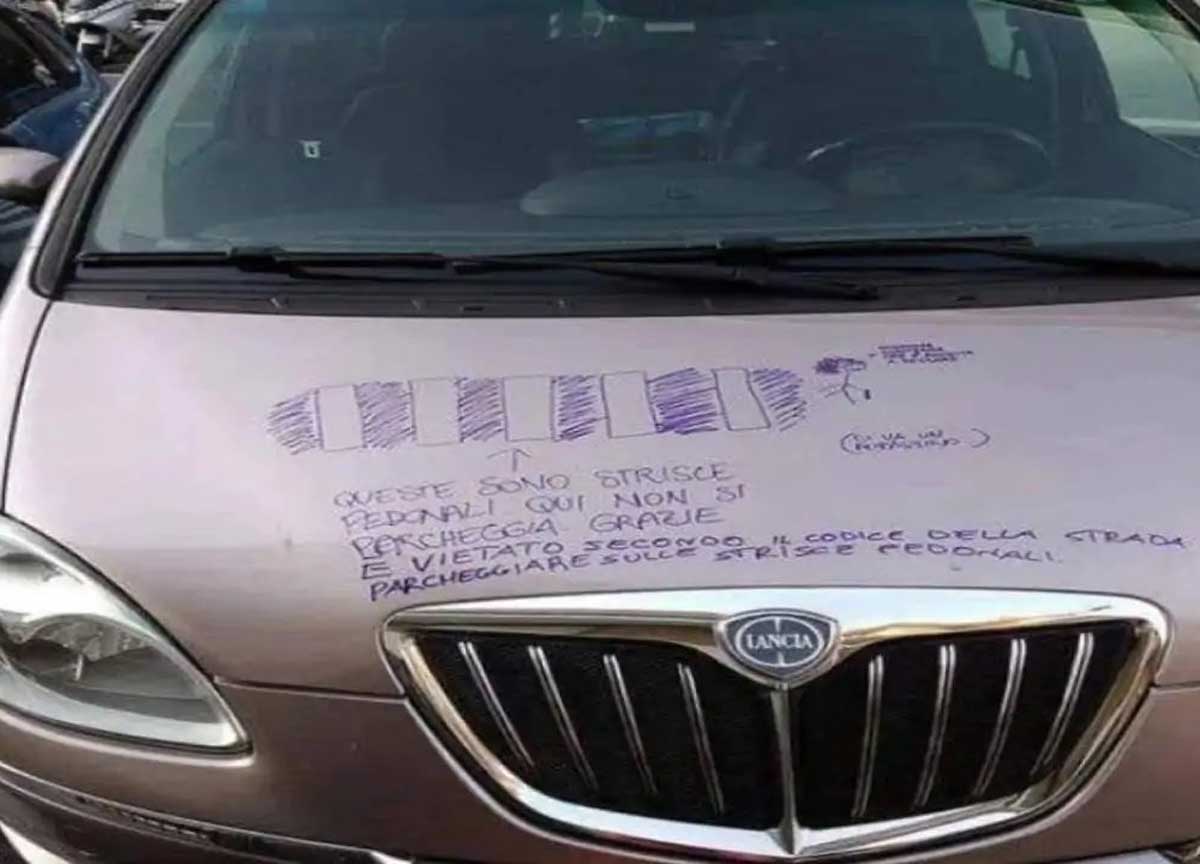 A SCUOLA
QUESTE SONO STRISCE
PEDONALI QUI NON SI
PARCHEGGIA GRAZIE
E VIETATO SECONDO IL CODICE DELLA STRADA
PARCHEGGIARE SULLE STRISCE PEDONALI.
LANCIA